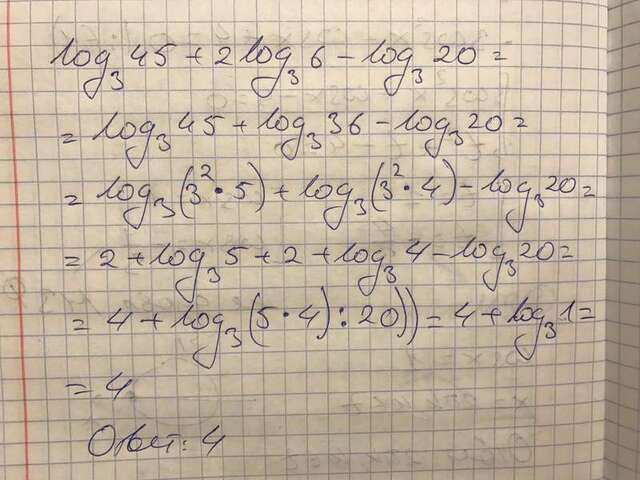 log₃45 + 2log₃6 − log₃20 =
= log₃45 + log₃36 − log₃20 =
= log₃(3²·5) + log₃(3²·4) − log₃20 =
= 2 + log₃5 + 2 + log₃4 − log₃20 =
= 4 + log₃(5·4):20)) = 4 + log₃1 =
= 4
Ответ: 4